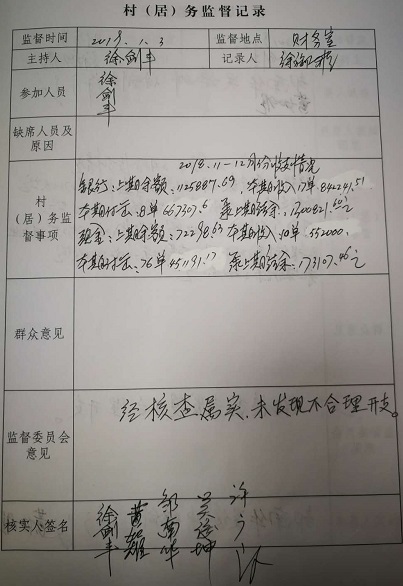 村（居）务监督记录
监督时间 2019.1.3 监督地点 财务室
主持人 徐剑丰 记录人
参加人员 徐剑丰
缺席人员及
原因
村
（居）务监
督事项
2018.11-12月份收支情况
银行:上期余额:1125887.69,本期收入17单842241.51
本期付出:8单667307.6 累上期结余:1300821.60元
现金:上期余额:72298.63 本期收入:10单.552000.
本期付出:76单451191.17 累上期结余:173107.46元
群众意见
监督委员会
意见
经核查属实,未发现不合理开支。
核实人签名
徐剑丰 黄耀 邹南华